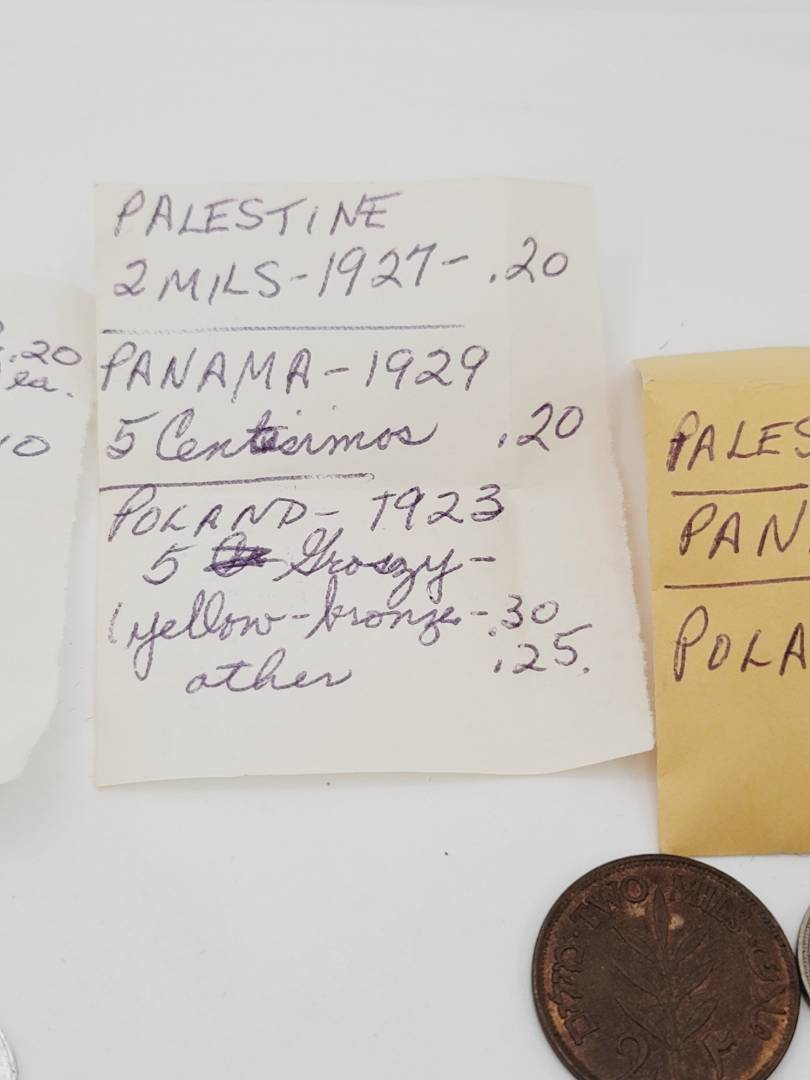 .20
ea.
10
PALESTINE
2 MILS - 1927 - .20
PANAMA - 1929
5 Centesimos .20
POLAND - 1923
5 Groszy -
1 yellow-bronze - .30
other .25.
PALES
PAN
POLA
TWO MILS
2 ٢